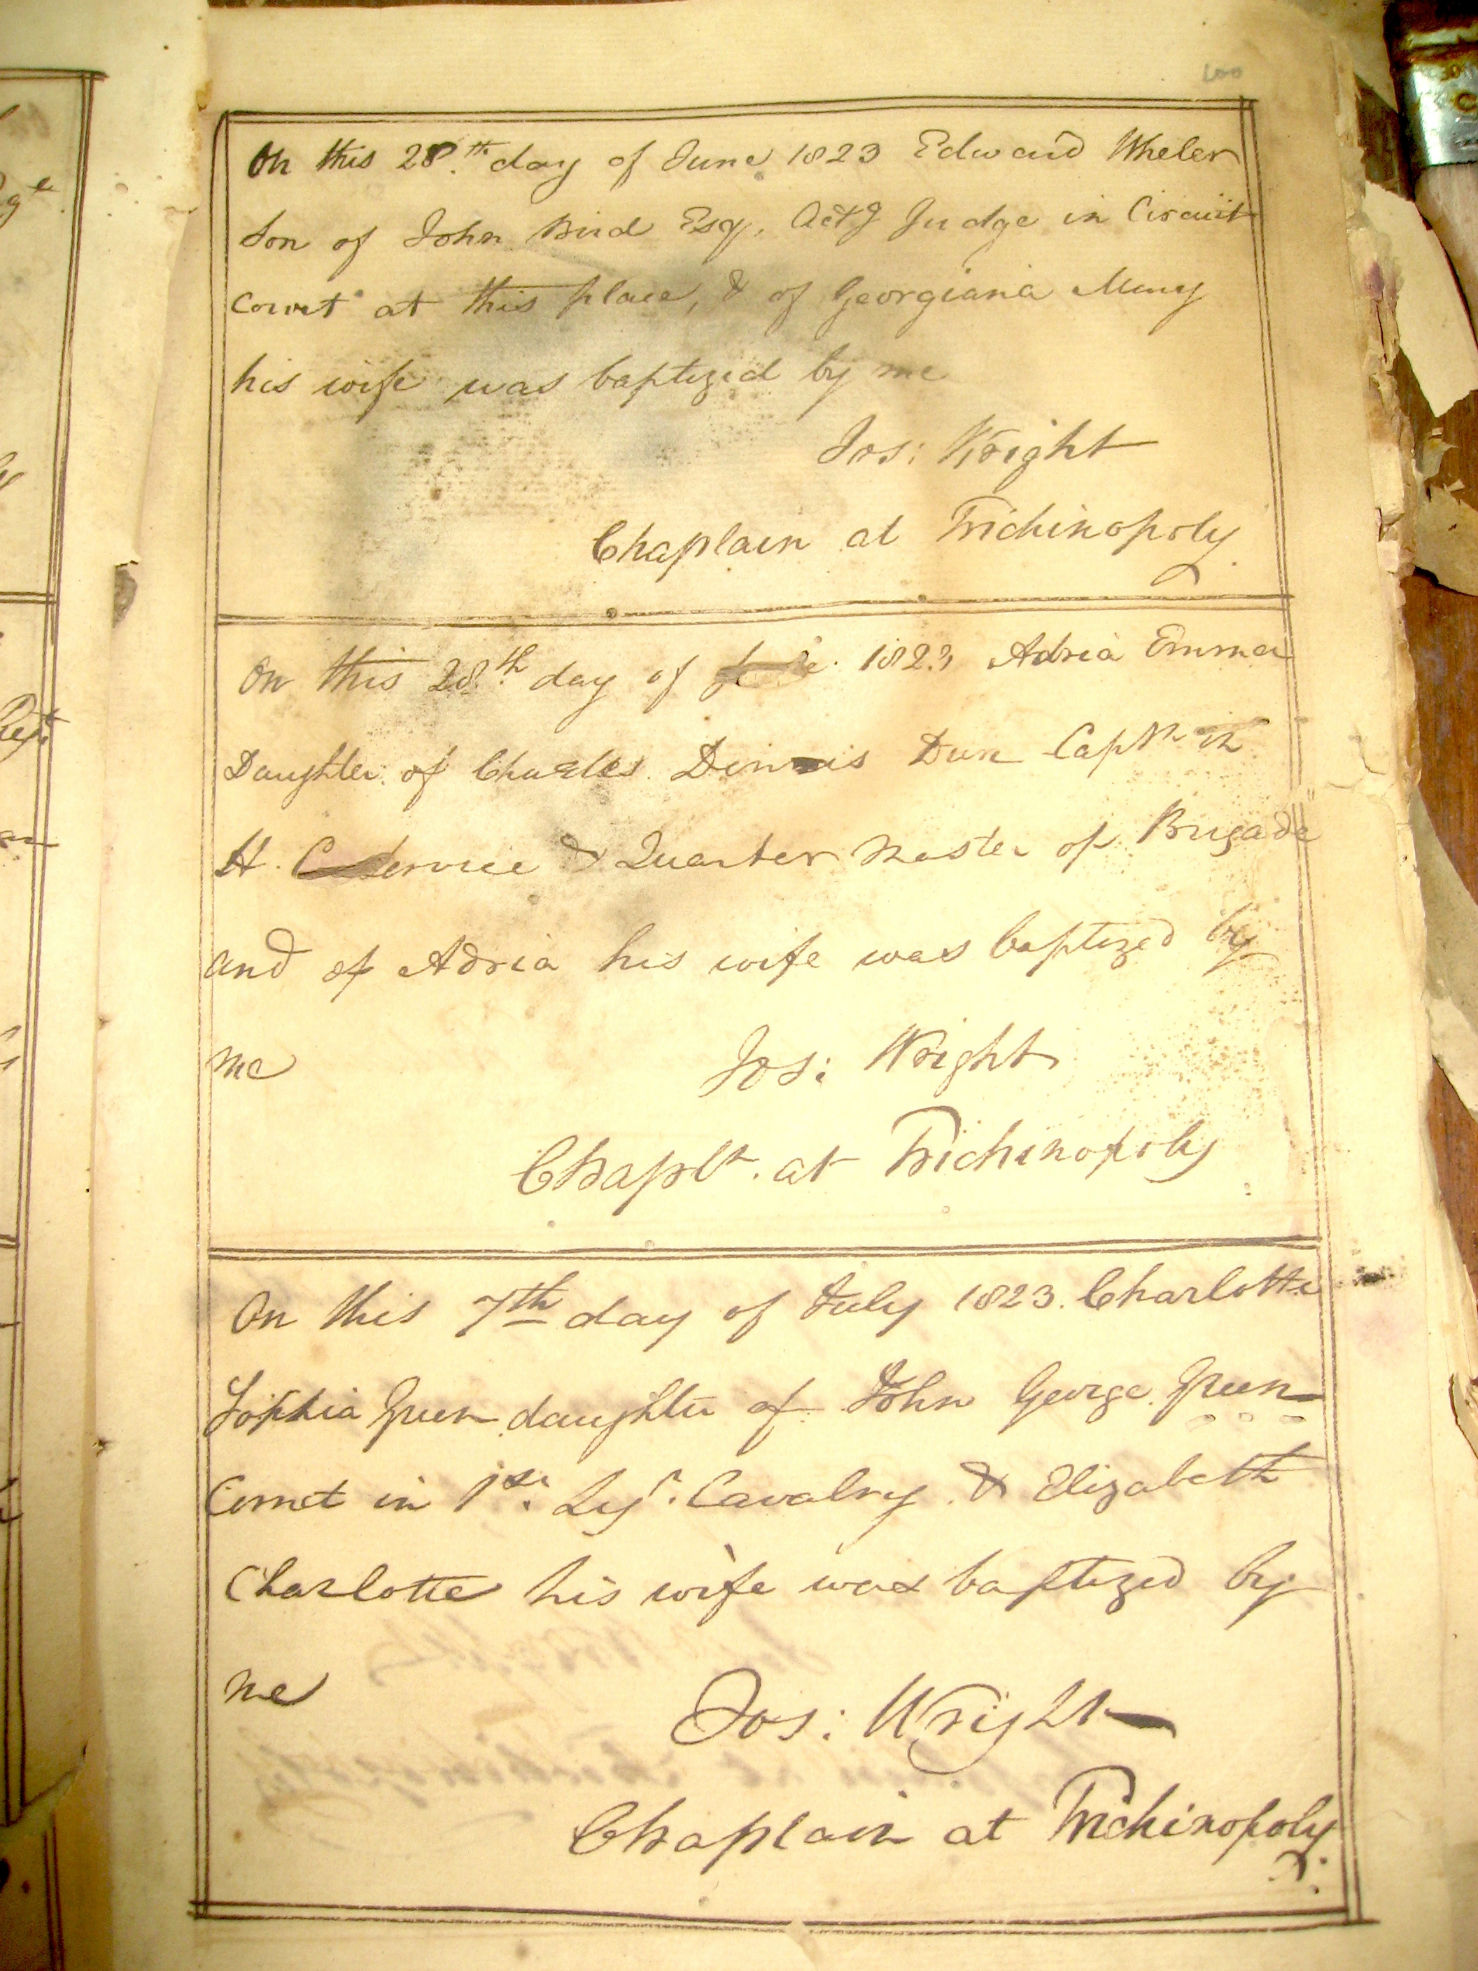 100
On this 28.th day of June 1823 Edward Wheler
Son of John Bird Esqr. Actg Judge in Circuit
Court at this place, & of Georgiana Mary
his wife was baptized by me
Jos: Wright
Chaplain at Trichinopoly.
On this 28th day of 1823 Adria Emma
Daughter of Charles Dennis Dun Captn in
H. C Service & Quarter Master of Brigade
and of Adria his wife was baptized by
me Jos: Wright
Chapln. at Trichinopoly
On this 7th day of July 1823. Charlotte
Sophia Green daughter of John George Green
Cornet in 1st. Cavalry & Elizabeth
Charlotte his wife was baptized by
me Jos: Wright
Chaplain at Trichinopoly